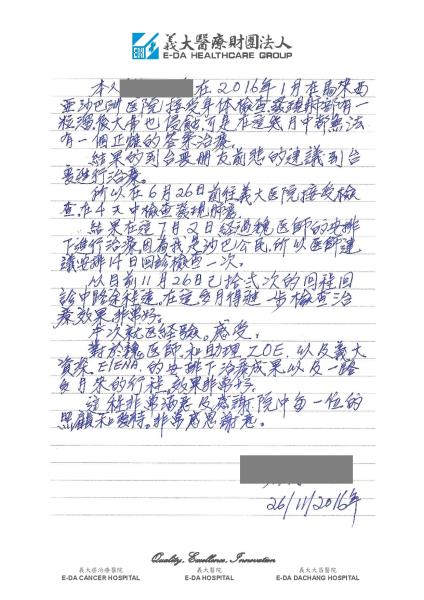 義大醫療財團法人
E-DA HEALTHCARE GROUP
本人 在2016年1月在馬來西
亞沙巴洲医院接受身体檢查發現肺部有一
粒溜很大 也侵蝕 可是在這幾月中都無法
有一個正確的答案治療。
結果的到台湾朋友 的建議到台
湾進行治療。
所以在6月26日前往義大医院接受檢
查在4天中檢查發現肺癌
結果在這7月2日經過魏医师的安排
下進行治療因為我是沙巴公民,所以医师建
議安排14日回診檢查一次。
从目前11月26日已拾弍次的回程回
診中 在這多月得進一步檢查治
療效果非常好。
本次就医經驗。感受。
對於魏医师,和助理 ZOE. 以及義大
ELENA. 的安排下治療成果以及一路
多月來的行程。效果非常好。
這种非常滿意及感謝院中每一位的
照顧 非常感恩謝意。
26/11/2016年
Quality, Excellence, Innovation
義大癌治療醫院
E-DA CANCER HOSPITAL
義大醫院
E-DA HOSPITAL
義大大昌醫院
E-DA DACHANG HOSPITAL